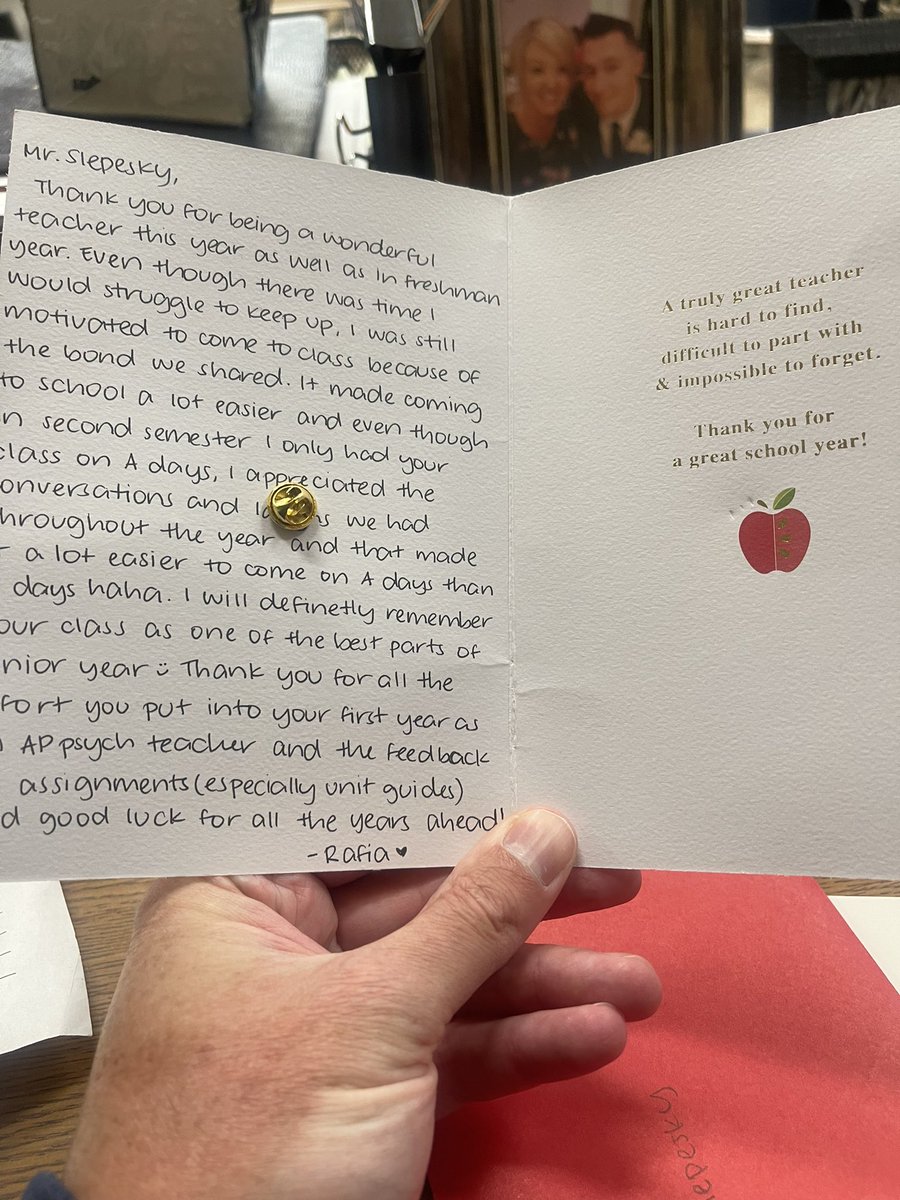 Mr. Slepesky,
Thank you for being a wonderful
teacher this year as well as in freshman
year. Even though there was time I
would struggle to keep up, I was still
motivated to come to class because of
the bond we shared. It made coming
to school a lot easier and even though
n second semester I only had your
class on A days, I appreciated the
onversations and we had
hroughout the year and that made
a lot easier to come on A days than
days haha. I will definetly remember
our class as one of the best parts of
nior year Thank you for all the
fort you put into your first year as
AP psych teacher and the feedback
assignments (especially unit guides)
d good luck for all the years ahead!
- Rafia ♥
A truly great teacher
is hard to find,
difficult to part with
& impossible to forget.
Thank you for
a great school year!
epesky